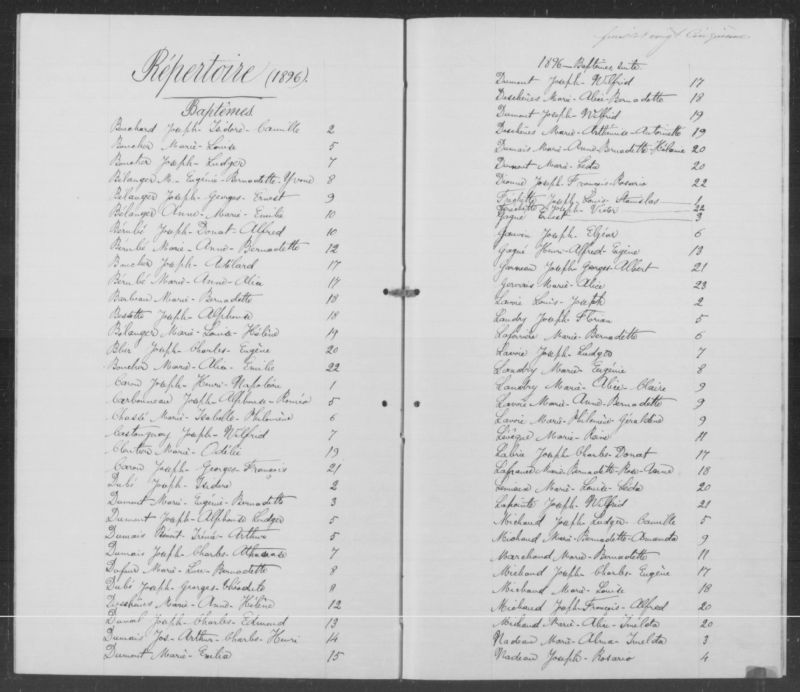 Répertoire (1896).
Baptêmes
Bouchard Joseph-Isidore-Camille 2
Boucher Marie-Louise 5
Boucher Joseph-Ludger 7
Bélanger M.-Eugénie-Bernadette-Yvonne 8
Bélanger Joseph-Georges-Ernest 9
Bélanger Anne-Marie-Emilie 10
Bérubé Joseph-Donat-Alfred 10
Bérubé Marie-Anne-Bernadette 12
Boucher Joseph-Adélard 17
Bérubé Marie-Anne-Alice 17
Barbeau Marie-Bernadette 18
Joseph-Alphonse 18
Bélanger Marie-Louise-Hélène 19
Blier Joseph-Charles-Eugène 20
Boucher Marie-Alice-Emilie 22
Caron Joseph-Henri-Napoléon 1
Carbonneau Joseph-Alphonse-Roméo 5
Chassé Marie-Isabelle-Philomène 6
Castonguay Joseph-Wilfrid 7
Cloutier Marie-Odélie 19
Caron Joseph-Georges-François 21
Dubé Joseph-Isidore 2
Dumont Marie-Eugénie-Bernadette 3
Dumont Joseph-Alphonse Ludger 5
Dumais Benoit-Irénée-Arthur 5
Dumais Joseph-Charles-Alphonse 7
Dufour Marie-Luce-Bernadette 8
Dubé Joseph-Georges- 8
Deschênes Marie-Anne-Hélène 12
Duval Joseph-Charles-Edmond 13
Dumais Jos-Arthur-Charles-Henri 14
Dumont Marie-Emilia 15
vingt cinquième
1896-Baptêmes suite
Dumont Joseph-Wilfrid 17
Deschênes Marie-Alice-Bernadette 18
Dumont Joseph-Wilfrid 19
Deschênes Marie-Arthémise-Antoinette 19
Dumais Marie-Anne-Bernadette-Hélène 20
Dumont-Marie-Léda 20
Dionne Joseph-François-Rosario 22
Joseph-Louis-Stanislas 1
Joseph-Victor 22
Gagné Ernest 3
Gauvin Joseph-Elzéar 6
Gagné Henri-Alfred-Eugène 13
Garneau Joseph Georges-Albert 21
Gervais Marie-Alice 23
Lavoie Louis-Joseph 2
Landry Joseph Florian 5
Laforêt Marie-Bernadette 6
Lavoie Joseph-Ludger 7
Landry Marie-Eugénie 8
Landry Marie-Alice-Claire 9
Lavoie Marie-Anne-Bernadette 9
Lavoie Marie-Philomène-Géraldine 9
Lévêque Marie-Reine 11
Labrie Joseph Charles-Donat 17
Lafrance Marie-Bernadette-Rose-Anne 18
Marie-Louise-Léda 20
Lapointe Joseph-Wilfrid 21
Michaud Joseph-Ludger-Camille 5
Michaud Marie-Bernadette-Amanda 9
Marchand Marie-Bernadette 11
Michaud Joseph-Charles-Eugène 17
Michaud Marie-Louise 18
Michaud Joseph-François-Alfred 20
Michaud Marie-Alice-Imelda 20
Nadeau Marie-Alma-Imelda 3
Nadeau Joseph-Rosario 4